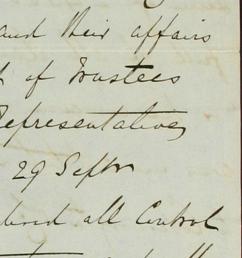 and their affairs
of Trustees
Representatives
29 Septr
all Control